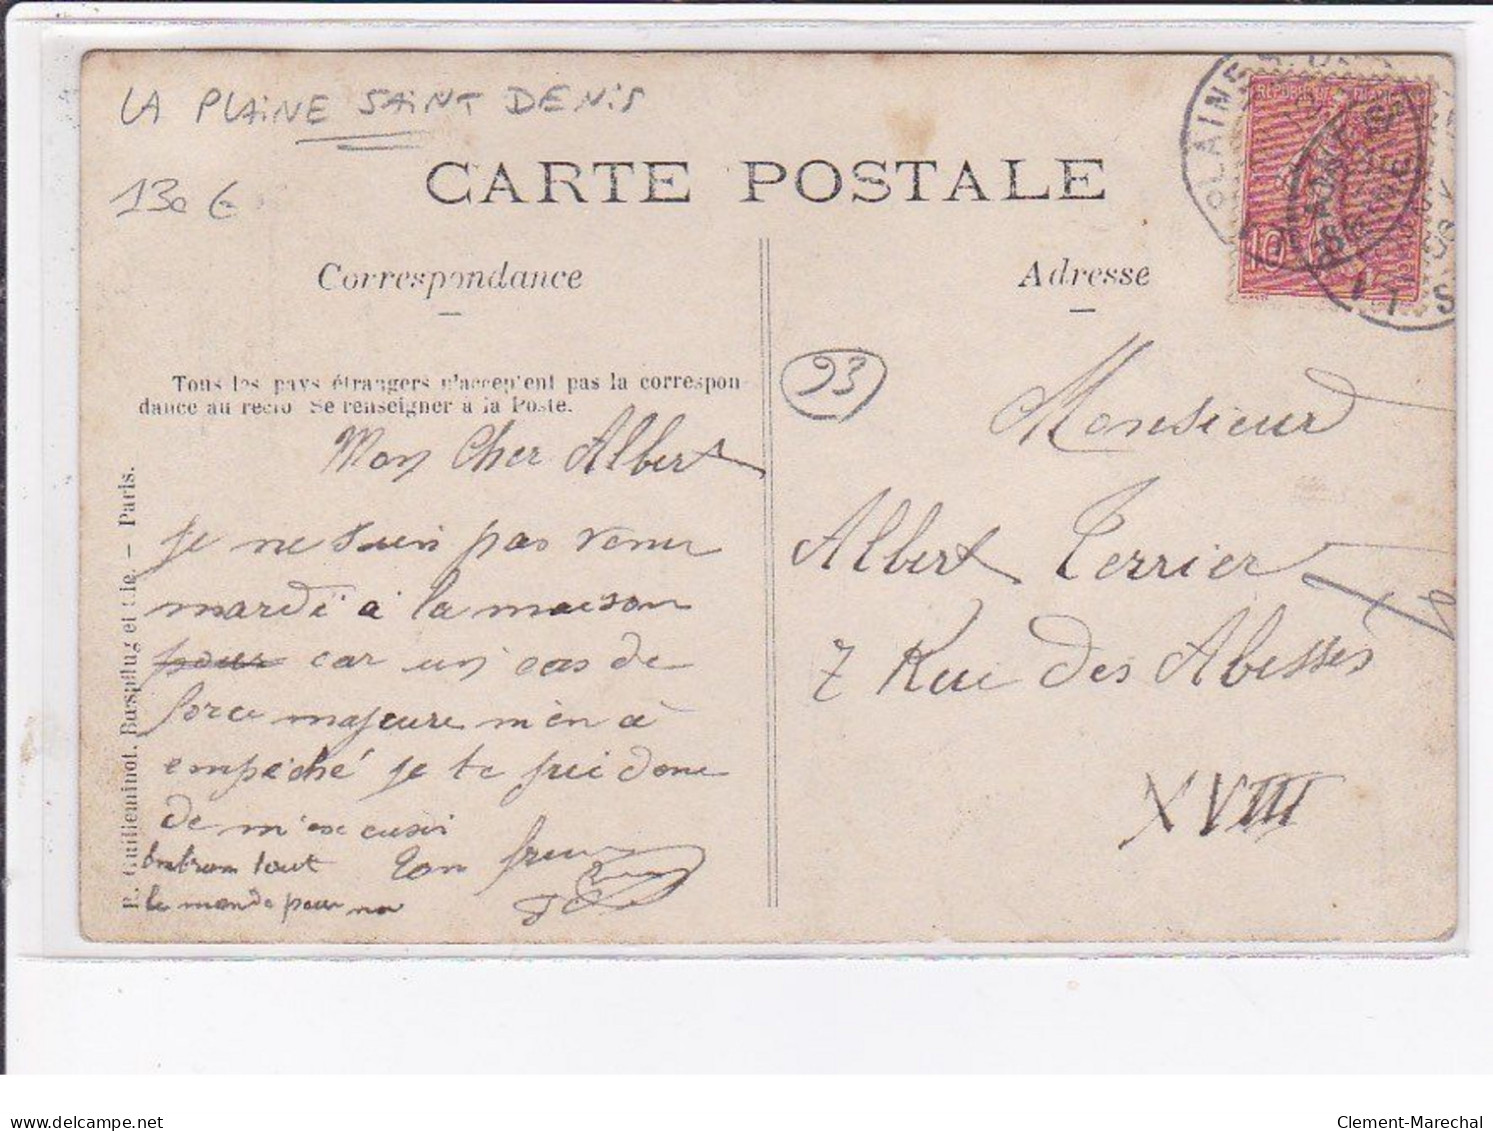 LA PLAINE SAINT DENIS
130 €
CARTE POSTALE
Correspondance
Adresse
Tous les pays étrangers n'acceptent pas la correspon-
dance au recto. Se renseigner à la Poste.
R. Guilleminot, Bœspflug et Cie. – Paris.
Mon Cher Albert
Je ne suis pas venu
mardi à la maison
pour car un cas de
force majeure m'en à
empéché je te prie donc
de m'excuser
Embrasse tout
le monde pour moi
Ton frère
93
RÉPUBLIQUE FRANÇAISE
10
PLAINE ST
SEINE
Monsieur
Albert Terrier
7 Rue des Abesses
XVIII
delcampe.net
Clement-Marechal